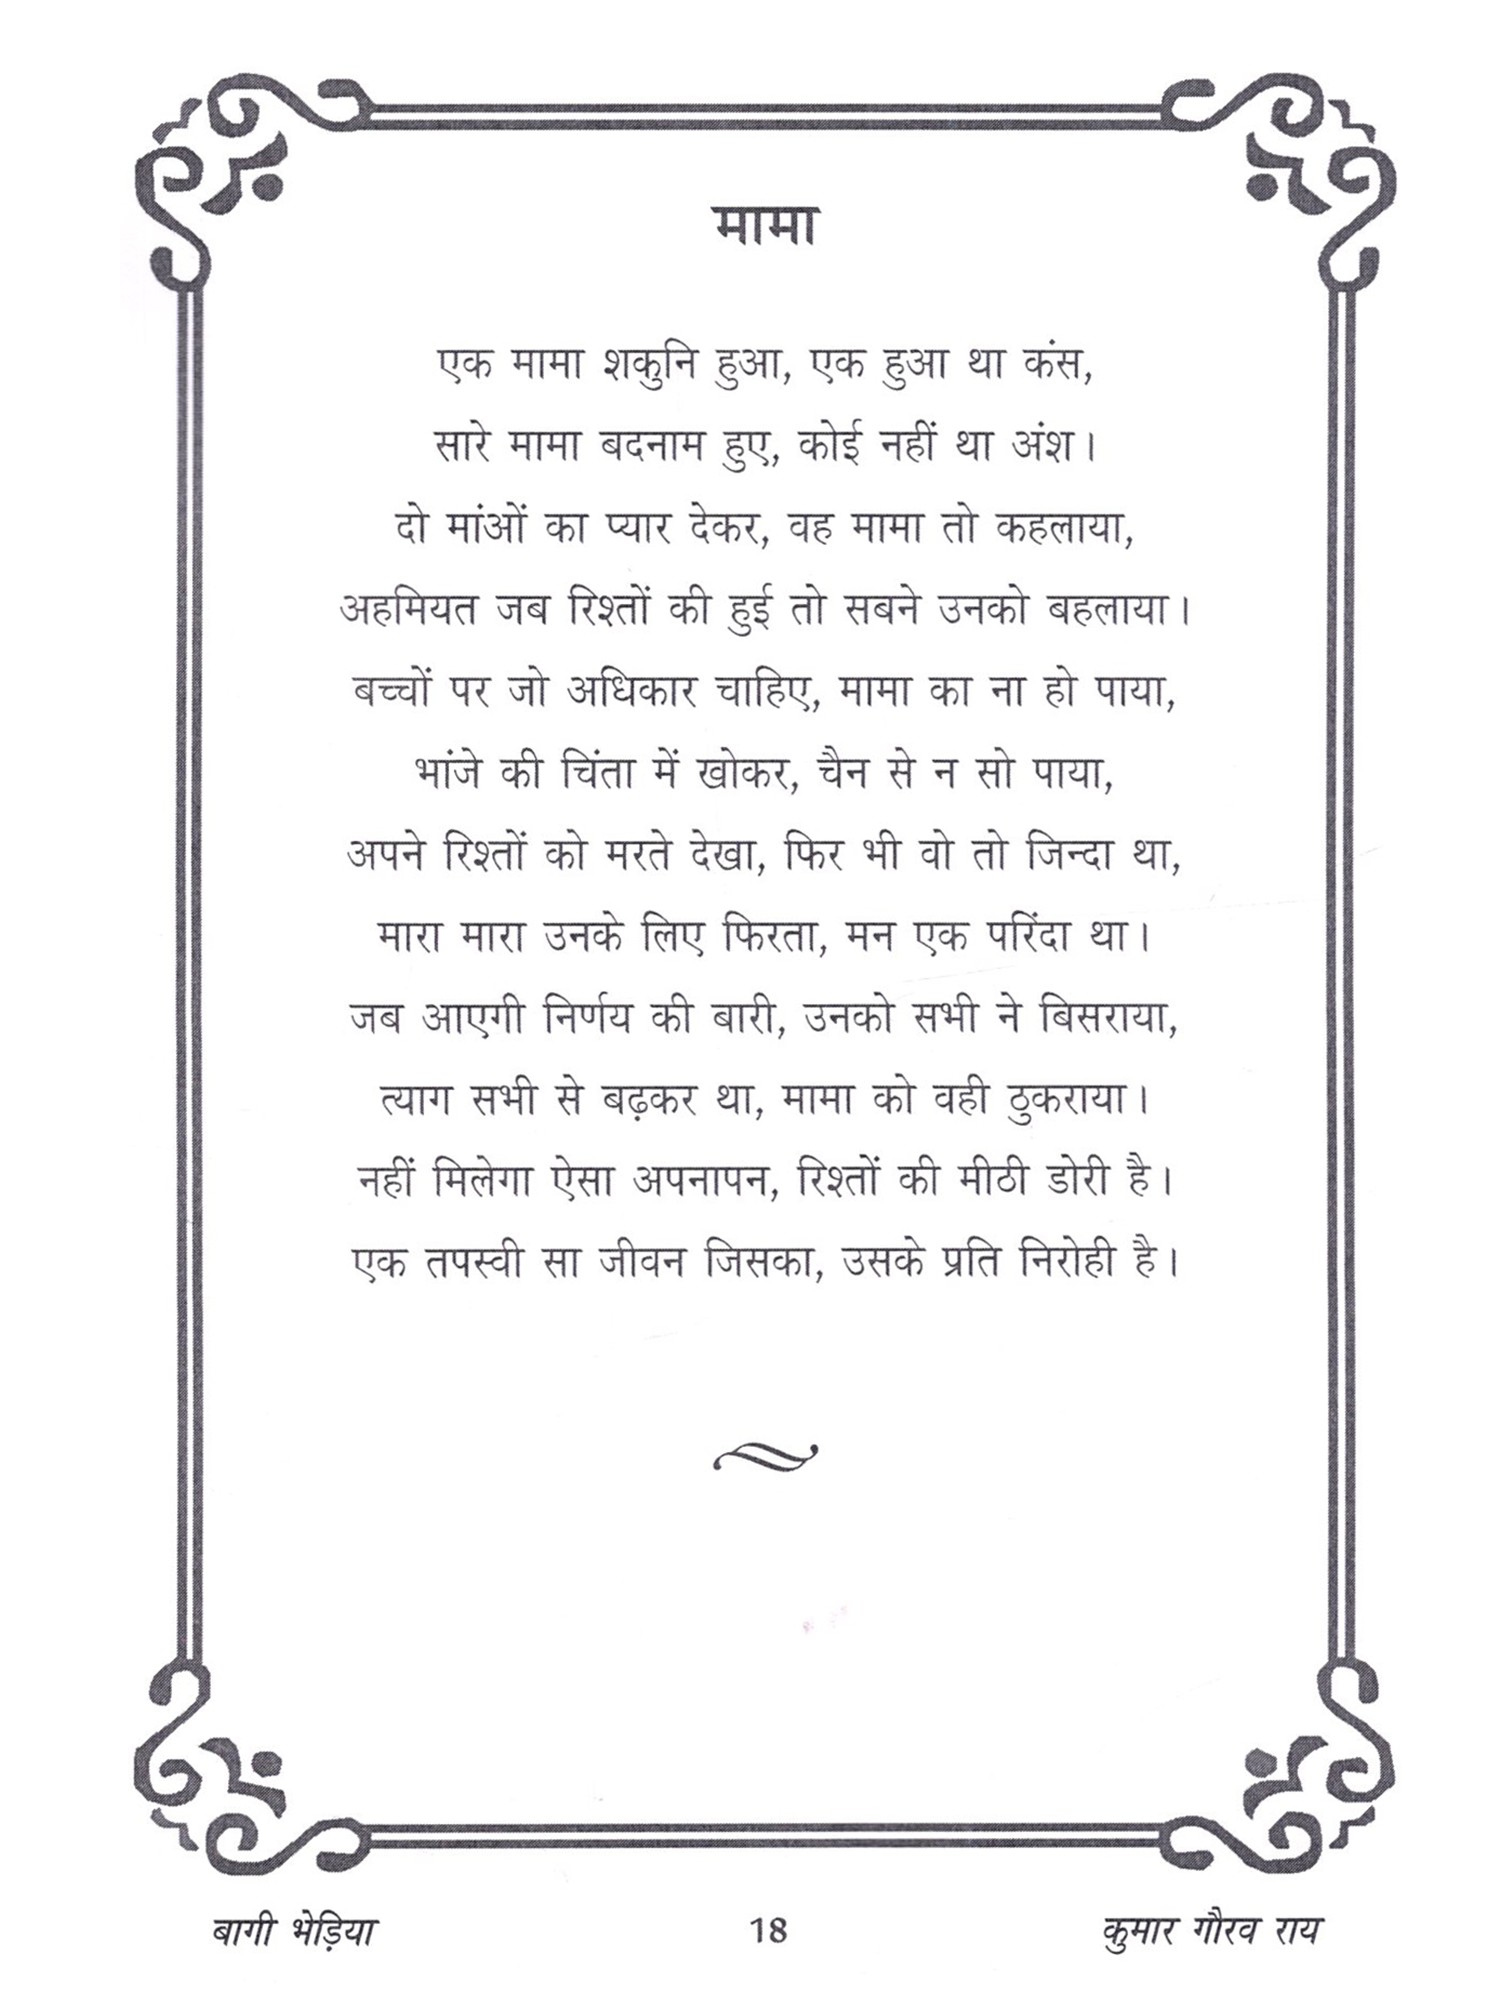 मामा
एक मामा शकुनि हुआ, एक हुआ था कंस,
सारे मामा बदनाम हुए, कोई नहीं था अंश।
दो मांओं का प्यार देकर, वह मामा तो कहलाया,
अहमियत जब रिश्तों की हुई तो सबने उनको बहलाया।
बच्चों पर जो अधिकार चाहिए, मामा का ना हो पाया,
भांजे की चिंता में खोकर, चैन से न सो पाया,
अपने रिश्तों को मरते देखा, फिर भी वो तो जिन्दा था,
मारा मारा उनके लिए फिरता, मन एक परिंदा था।
जब आएगी निर्णय की बारी, उनको सभी ने बिसराया,
त्याग सभी से बढ़कर था, मामा को वही ठुकराया।
नहीं मिलेगा ऐसा अपनापन, रिश्तों की मीठी डोरी है।
एक तपस्वी सा जीवन जिसका, उसके प्रति निरोही है।
बागी भेड़िया 18 कुमार गौरव राय